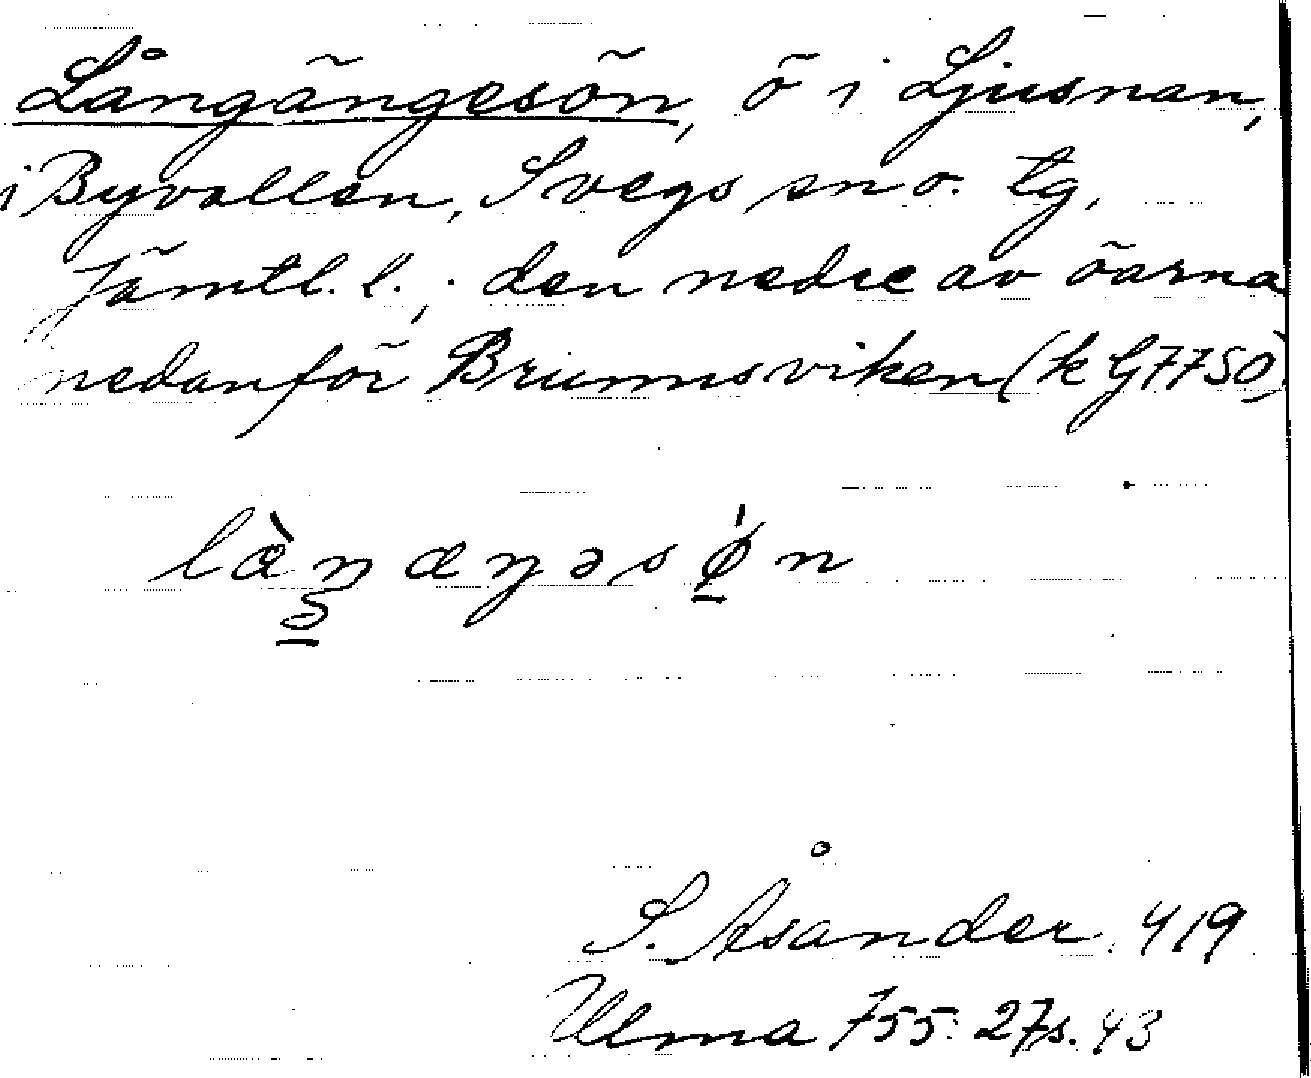 Långängesön, ö i Ljusnan,
i Byvallen, Svegs sn o. tg,
Jämtl. l.; den nedre av öarna
nedanför Brunnsviken (k G7750)
S. Åsander. 419
Ulma 755: 27 s. 43